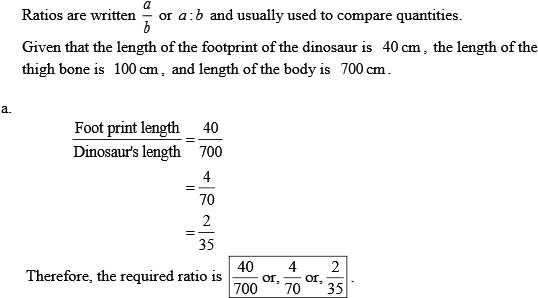 Ratios are written a/b or a:b and usually used to compare quantities.
Given that the length of the footprint of the dinosaur is 40 cm, the length of the
thigh bone is 100 cm, and length of the body is 700 cm.
a.
Foot print length/Dinosaur's length = 40/700
= 4/70
= 2/35
Therefore, the required ratio is 40/700 or, 4/70 or, 2/35.